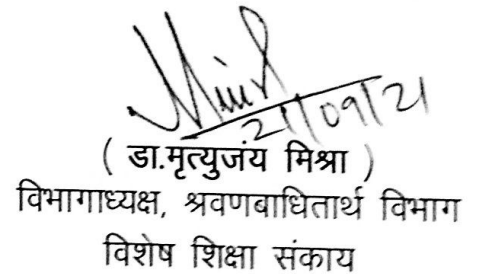 21/09/21
( डा.मृत्युजंय मिश्रा )
विभागाध्यक्ष, श्रवणबाधितार्थ विभाग
विशेष शिक्षा संकाय